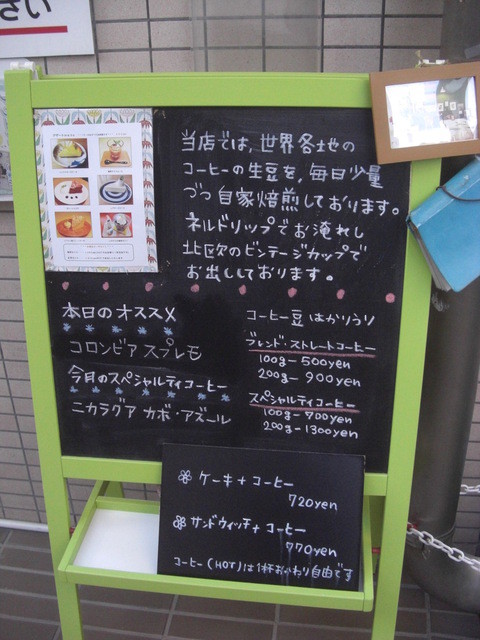 さい
当店では、世界各地の
コーヒーの生豆を、毎日少量
づつ自家焙煎しております。
ネルドリップでお淹れし
北欧のビンテージカップで
お出ししております。
本日のオススメ
コロンビア スプレモ
今月のスペシャルティコーヒー
ニカラグア カボ・アズール
コーヒー豆 はかりうり
ブレンド・ストレートコーヒー
100g-500yen
200g-900yen
スペシャルティコーヒー
100g-700yen
200g-1300yen
ケーキ+コーヒー
720yen
サンドウィッチ+コーヒー
770yen
コーヒー(HOT)は1杯おかわり自由です